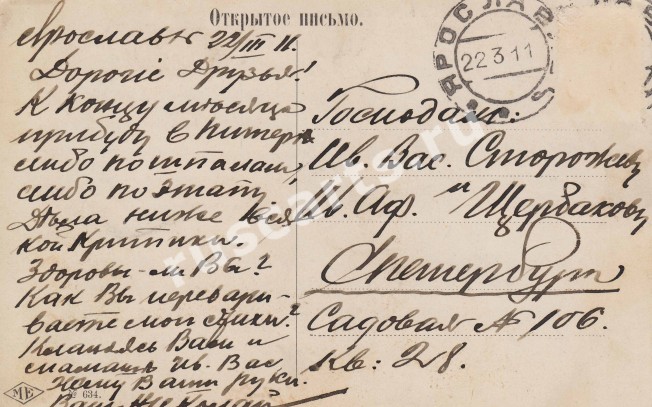 Открытое письмо.
Ярославль 22/III 11.
Дорогіе Друзья!
К концу мѣсяца
прибуду в Питеръ
либо по шпалам,
либо по этапу
Дѣла ниже вся
кой критики.
Здоровы-ли Вы?
Как Вы перевари-
ваете мои стихи?
Кланяюсь Вам и
мамаше Ив. Вас.
Жму Ваши руки.
Ваш
ЯРОСЛАВЛЬ
22 3 11
Господамъ:
Ив. Вас. Сторожеву
и
Ив. Аф. Щербакову
СПетербург
Садовая № 106.
Кв: 28.
МЕ № 634.
ruscarts.ru